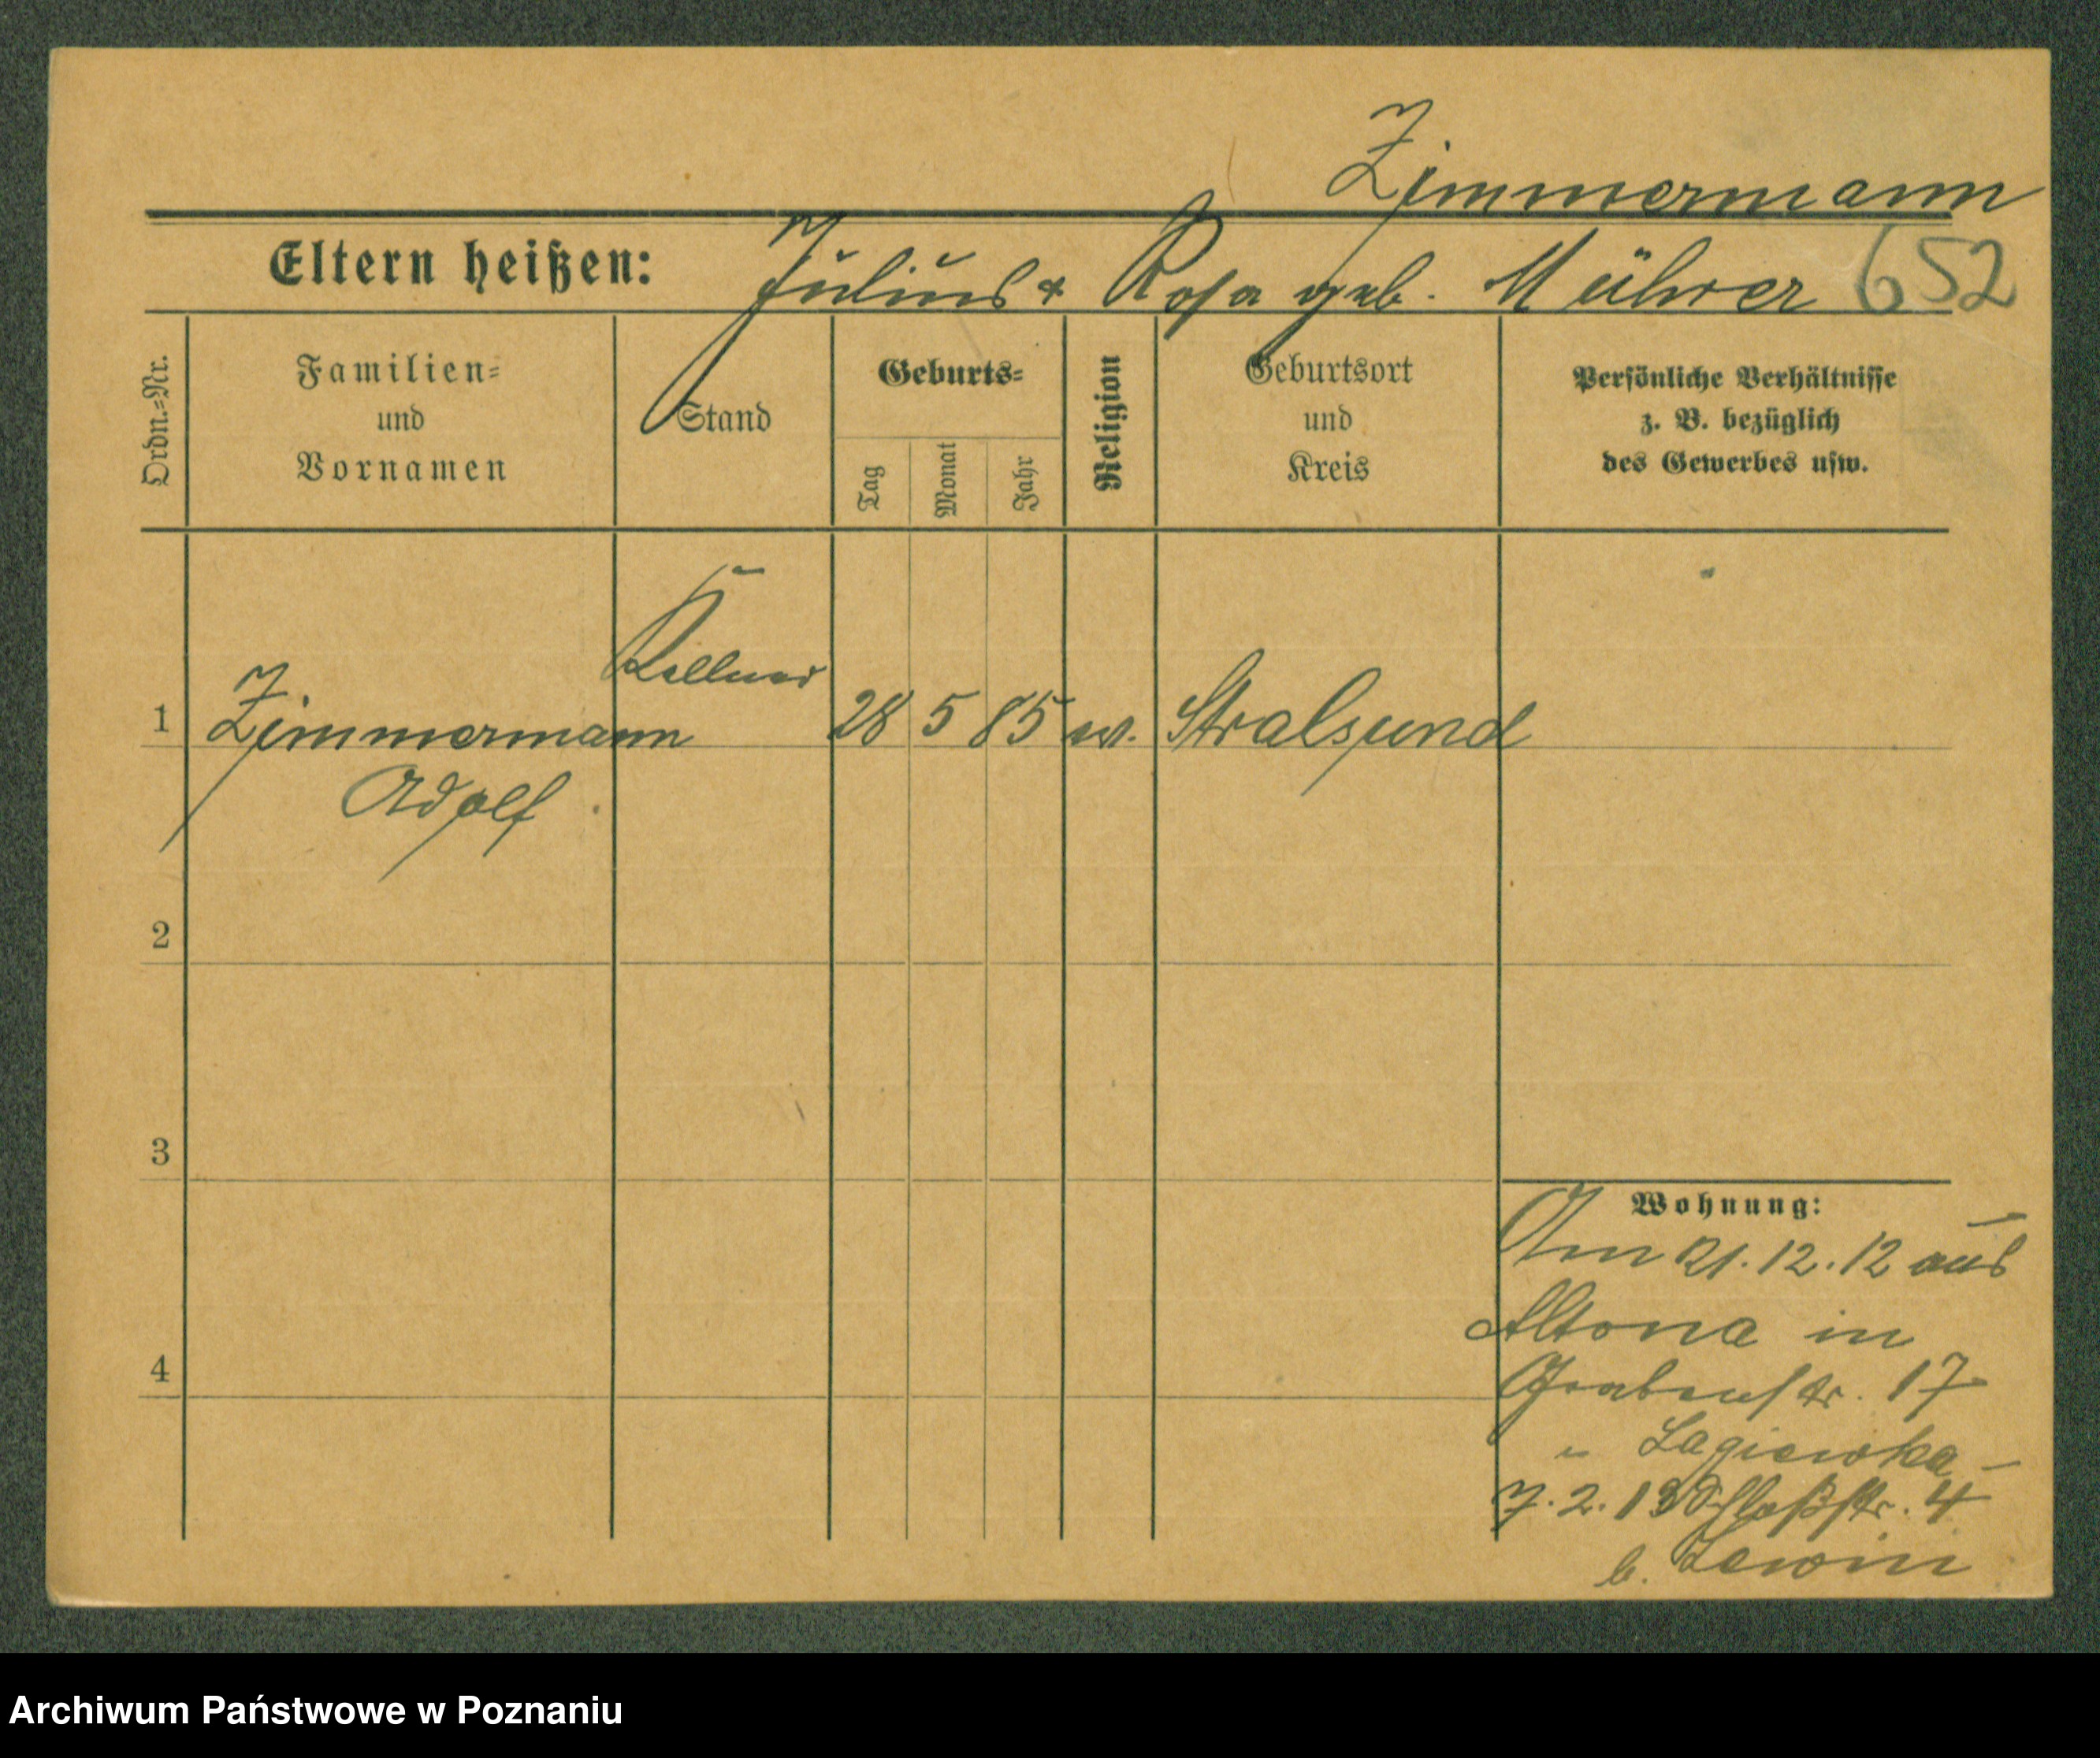 Zimmermann
Eltern heißen: Julius & Rosa geb. Mührer 652
Ordn.-Nr.
Familien-
und
Vornamen
Stand
Geburts-
Tag
Monat
Jahr
Religion
Geburtsort
und
Kreis
Persönliche Verhältnisse
z. B. bezüglich
des Gewerbes usw.
Kellner
1 Zimmermann 28 5 85 ev. Stralsund
Adolf
2
3
4
Wohnung:
Am 21.12.12 aus
Altona in
Grabenstr. 17
" Lagiewka
7.2.13 Schloßstr. 4
b. Lewin
Archiwum Państwowe w Poznaniu